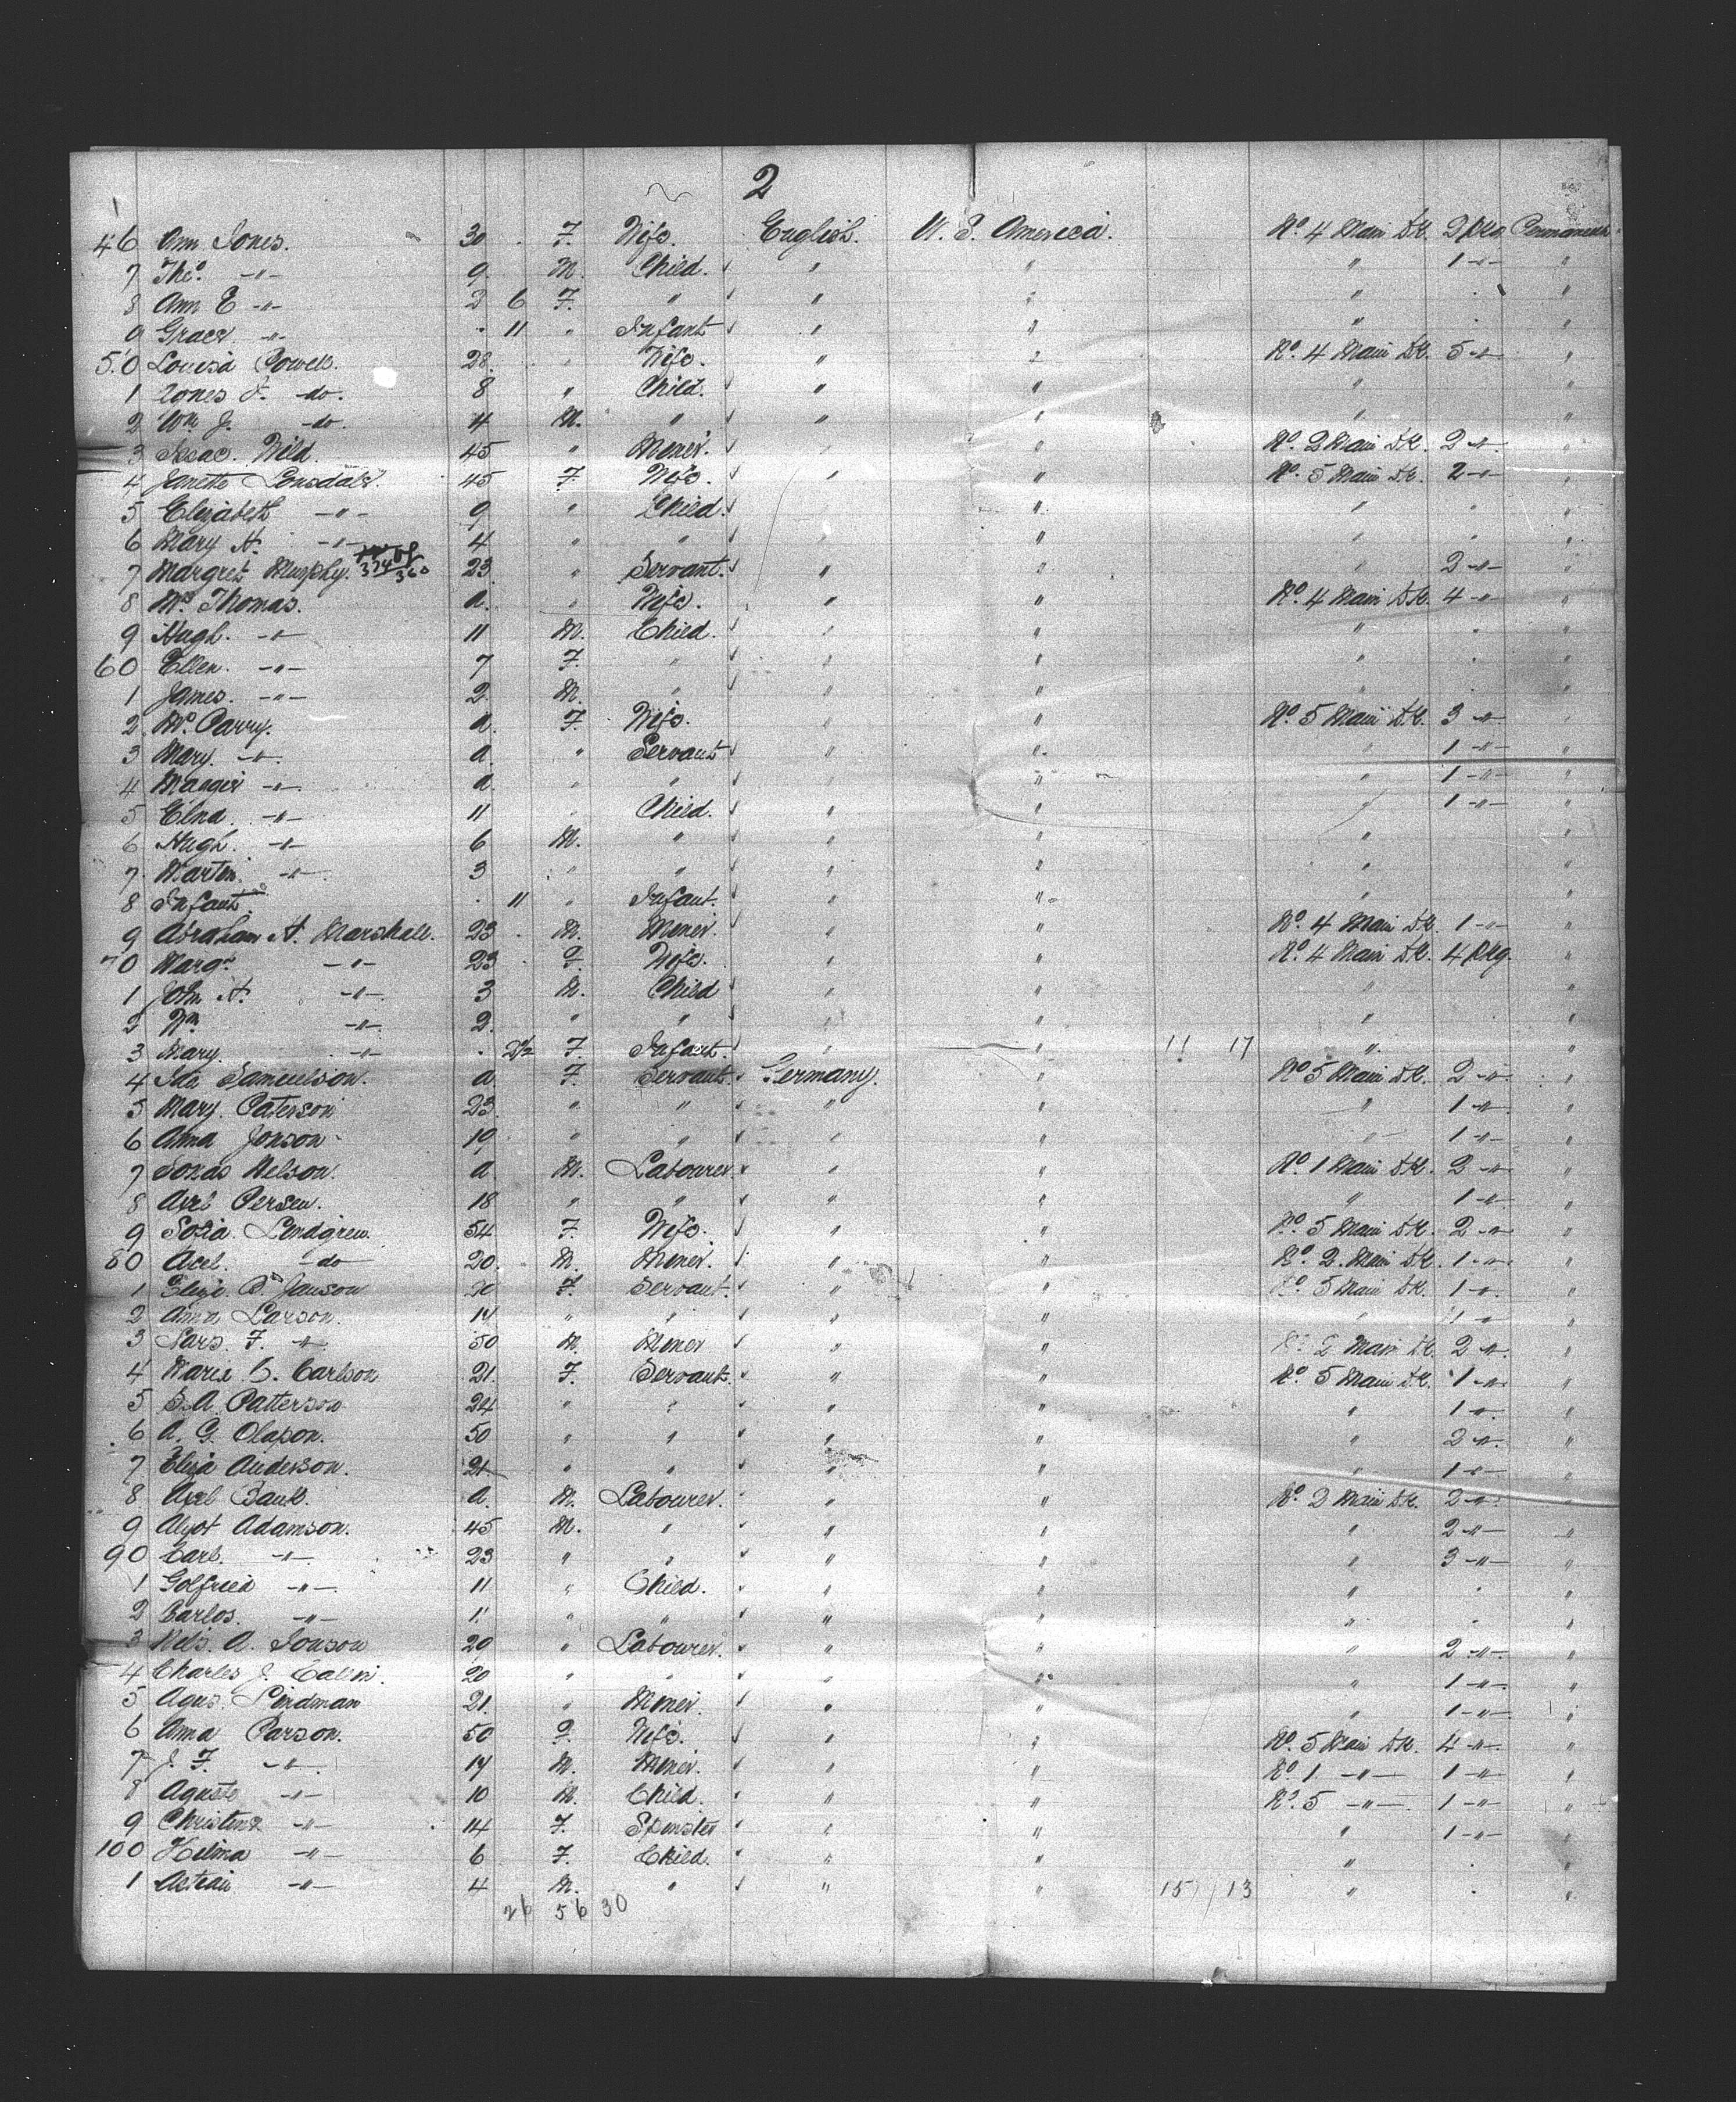 2
46 Ann Jones. 30 . F. Wife. English. U. S. America. No. 4 Main Dk. 2 Pkg Permanent
7 Tho. -"- 9. M. Child. " " " 1 -"- "
8 Ann E -"- 2 6 F. " " " " . "
9 Grace -"- . 11 " Infant " " " . "
50 Louisa Powell. 28. " Wife. " " No. 4 Main Dk. 5 -"- "
1 J. -do. 8 " Child. " " " "
2 Wm J. -do. 4 M. " " " " "
3 Isaac. Wild. 45 " Miner. " " No. 2 Main Dk. 2 -"- "
4 Janette Lonsdale. 45 F. Wife. " " No. 5 Main Dk. 2 -"- "
5 Elizabeth -"- 9 " Child. " " " " "
6 Mary A. -"- 4 " " " " " " "
7 Margret Murphy. 374 360 23 " Servant. " " " 2 -"- "
8 Mrs Thomas. a. " Wife. " " No. 4 Main Dk. 4 -"- "
9 Hugh. -"- 11 M. Child. " " " . "
60 Ellen. -"- 7 F. " " " " . "
1 James. -"- 2. M. " " " " . "
2 Mrs Parry. a. F. Wife. " " No. 5 Main Dk. 3 -"- "
3 Mary. -"- a. " Servant " " " 1 -"- "
4 Maggie -"- a. " " " " " 1 -"- "
5 Elna. -"- 11 " Child. " " " 1 -"- "
6 Hugh. -"- 6 M. " " " " "
7 Martin. -"- 3 " " " " " "
8 Infant. . 11 " Infant. " " " "
9 Abraham A. Marshall. 23 . M. Miner. " " No. 4 Main Dk. 1 -"- "
70 Margt -"- 23 . F. Wife. " " No. 4 Main Dk. 4 Pkg. "
1 John A. -"- 3 M. Child " " " "
2 Wm -"- 2. " " " " " "
3 Mary. -"- . 2½ F. Infant. " " 11 17 " "
4 Ida Samuelson. a F. Servant. Germany. " No 5 Main Dk. 2 -"- "
5 Mary. Paterson 23. " " " " " 1 -"- "
6 Anna Jonson 19. " " " " " 1 -"- "
7 Jonas Nelson. a. M. Labourer. " " No. 1 Main Dk. 2 -"- "
8 Axel Persen. 18 " " " " " 1 -"- "
9 Sofia. Lendgren. 54 F. Wife. " " No. 5 Main Dk. 2 -"- "
80 Acel. -do 20. M. Miner. " " No. 2. Main Dk. 1 -"- "
1 Janson 20 F. Servant. " " No. 5 Main Dk. 1 -"- "
2 Anna Larson. 14 " " " " " 1 -"- "
3 Lars. F. -"- 50 M. Miner " " No. 2 Main Dk. 2 -"- "
4 Marie C. Carlson 21. F. Servant. " " No. 5 Main Dk. 1 -"- "
5 S. A. Patterson 24 " " " " " 1 -"- "
6 A. G. Olapon. 50 " " " " " 2 -"- "
7 Eliza Anderson. 21 " " " " " 1 -"- "
8 Axel a. M. Labourer. " " No. 2 Main Dk. 2 -"- "
9 Adamson. 45 M. " " " " 2 -"- "
90 Carl. -"- 23 " " " " " 3 -"- "
1 Golfried -"- 11 " Child. " " " . "
2 Carlos. -"- 1. " " " " " . "
3 Nels. A. Jonson 20 " Labourer. " " " 2 -"- "
4 Charles J. 20 " " " " " 1 -"- "
5 Agus. Lindman 21. " Miner. " " " 1 -"- "
6 Anna Parson. 50 F. Wife. " " No. 5 Main Dk. 4 -"- "
7 J. F. -"- 17 M. Miner. " " No. 1 -"- 1 -"- "
8 Aguste -"- 10 M. Child. " " No. 5 -"- 1 -"- "
9 Christena -"- 14 F. Spinster " " " 1 -"- "
100 Helina -"- 6 F. Child. " " " . "
1 -"- 4 M. " " " 15 13 " . "
26 56 30